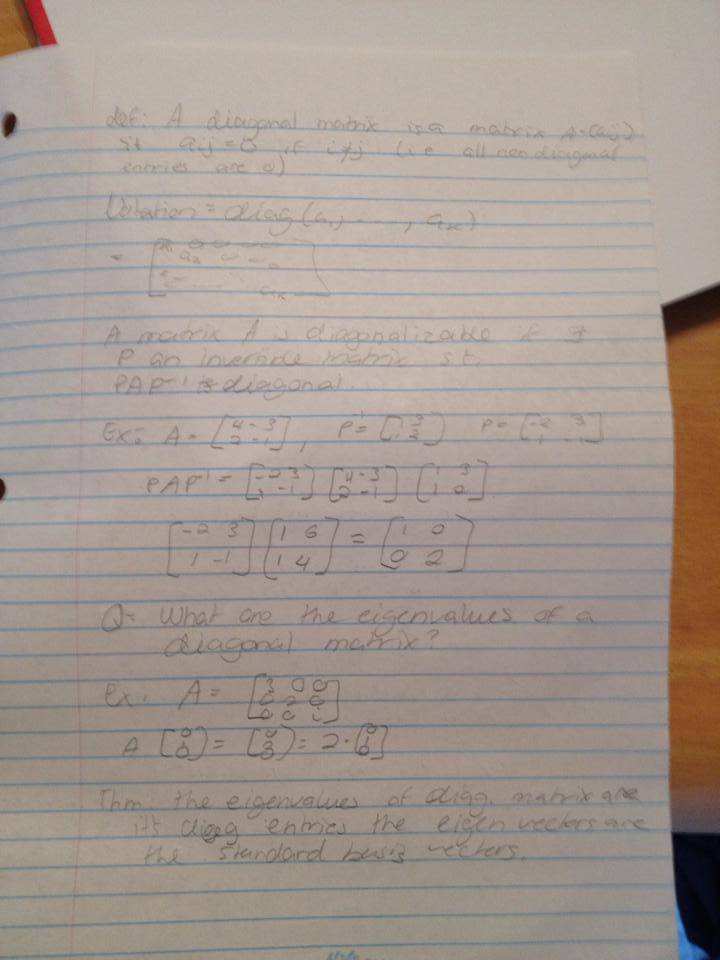 def: A diagonal matrix is a matrix A=(aij)
st aij=0 if i≠j (i.e all non diagonal
entries are 0)
Notation = diag(a1, ..., an)
A matrix A is diagonalizable if ∃
P an invertible matrix st.
PAP⁻¹ is diagonal.
Ex: A = [4 -3; 2 -1], P⁻¹ = [1 3; 1 2] P = [-2 3; 1 -1]
PAP⁻¹ = [-2 3; 1 -1] [4 -3; 2 -1] [1 3; 1 2]
[-2 3; 1 -1] [1 6; 1 4] = [1 0; 0 2]
Q: What are the eigenvalues of a
diagonal matrix?
Ex. A = [3 0 0; 0 2 0; 0 0 1]
A = = 2·[0; 1; 0]
Thm. the eigenvalues of diag. matrix are
its diag entries the eigen vectors are
the standard basis vectors.